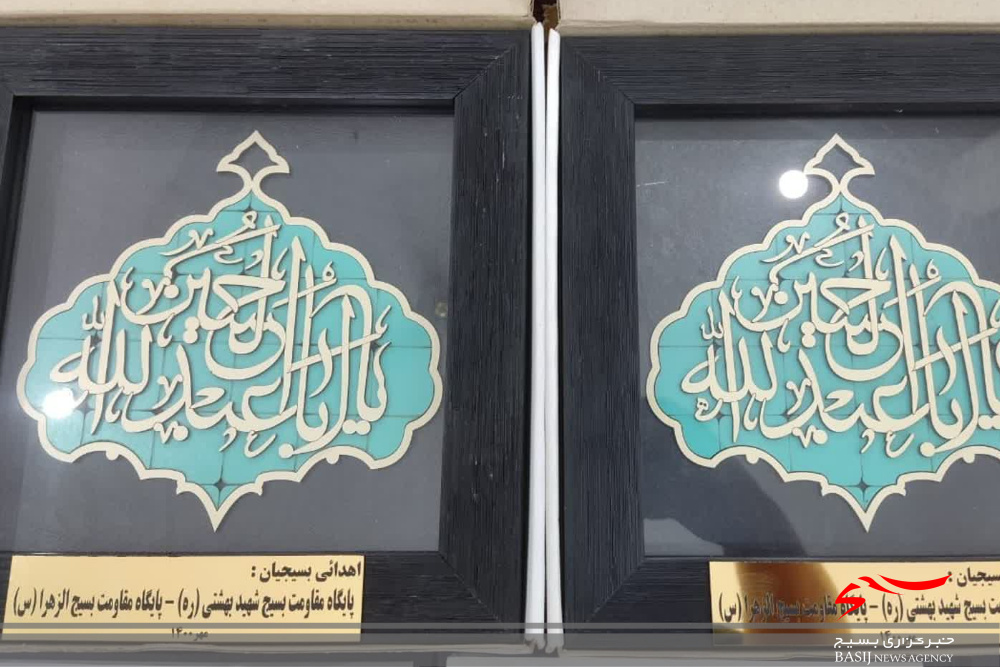 یا ابا عبدالله الحسین
اهدائی بسیجیان :
پایگاه مقاومت بسیج شهید بهشتی (ره) – پایگاه مقاومت بسیج الزهرا (س)
مهر ۱۴۰۰
یا ابا عبدالله الحسین
بسیجیان :
ت بسیج شهید بهشتی (ره) – پایگاه مقاومت بسیج الزهرا (س)
بسیج
خبرگزاری بسیج
BASIJ NEWS AGENCY